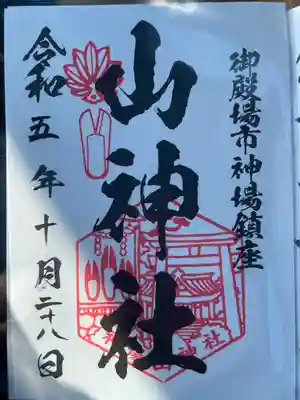 御殿場市神場鎮座
山神社
令和五年十月二十八日